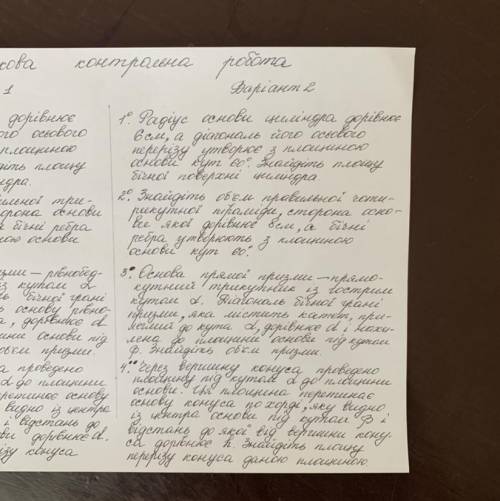 кова контрольна робота
1
дорівнює
ого осьового
площиною
діть площу
ндра.
ильної три-
орона основи
бічні ребра
ною основи
изми — рівнобед-
із кутом α
ь бічної грані
ь основу рівно-
а, дорівнює d
ини основи під
об'єм призми.
а проведено
α до площини
еретинає основу
видно із центра
і відстань до
ви дорівнює d.
різу конуса
Варіант 2
1° Радіус основи циліндра дорівнює
6 см, а діагональ його осьового
перерізу утворює з площиною
основи кут 60°. Знайдіть площу
бічної поверхні циліндра
2° Знайдіть об'єм правильної чоти-
рикутної піраміди, сторона осно-
ви якої дорівнює 6см, а бічні
ребра утворюють з площиною
основи кут 60°.
3• Основа прямої призми — прямо-
кутний трикутник із гострим
кутом α. Діагональ бічної грані
призми, яка містить катет, при-
леглий до кута α, дорівнює d і нахи-
лена до площини основи під кутом
φ. Знайдіть об'єм призми.
4•• Через вершину конуса проведено
площину під кутом α до площини
основи. Ця площина перетинає
основу конуса по хорді, яку видно
із центра основи під кутом β і
відстань до якої від вершини кону-
са дорівнює h. Знайдіть площу
перерізу конуса даною площиною.